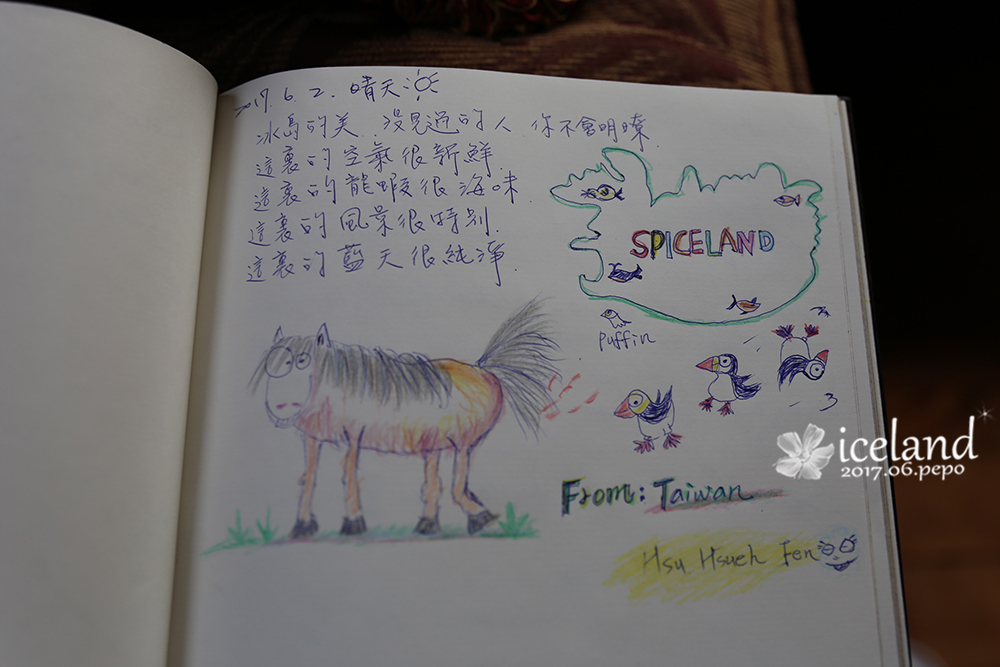 2017.6.2. 晴天
冰島的美 沒見過的人 你不會明瞭
這裏的空氣很新鮮
這裏的龍蝦很海味
這裏的風景很特別.
這裏的藍天很純淨.
SPICELAND
Puffin
From: Taiwan
Hsu Hsueh Fen
iceland
2017.06.pepo